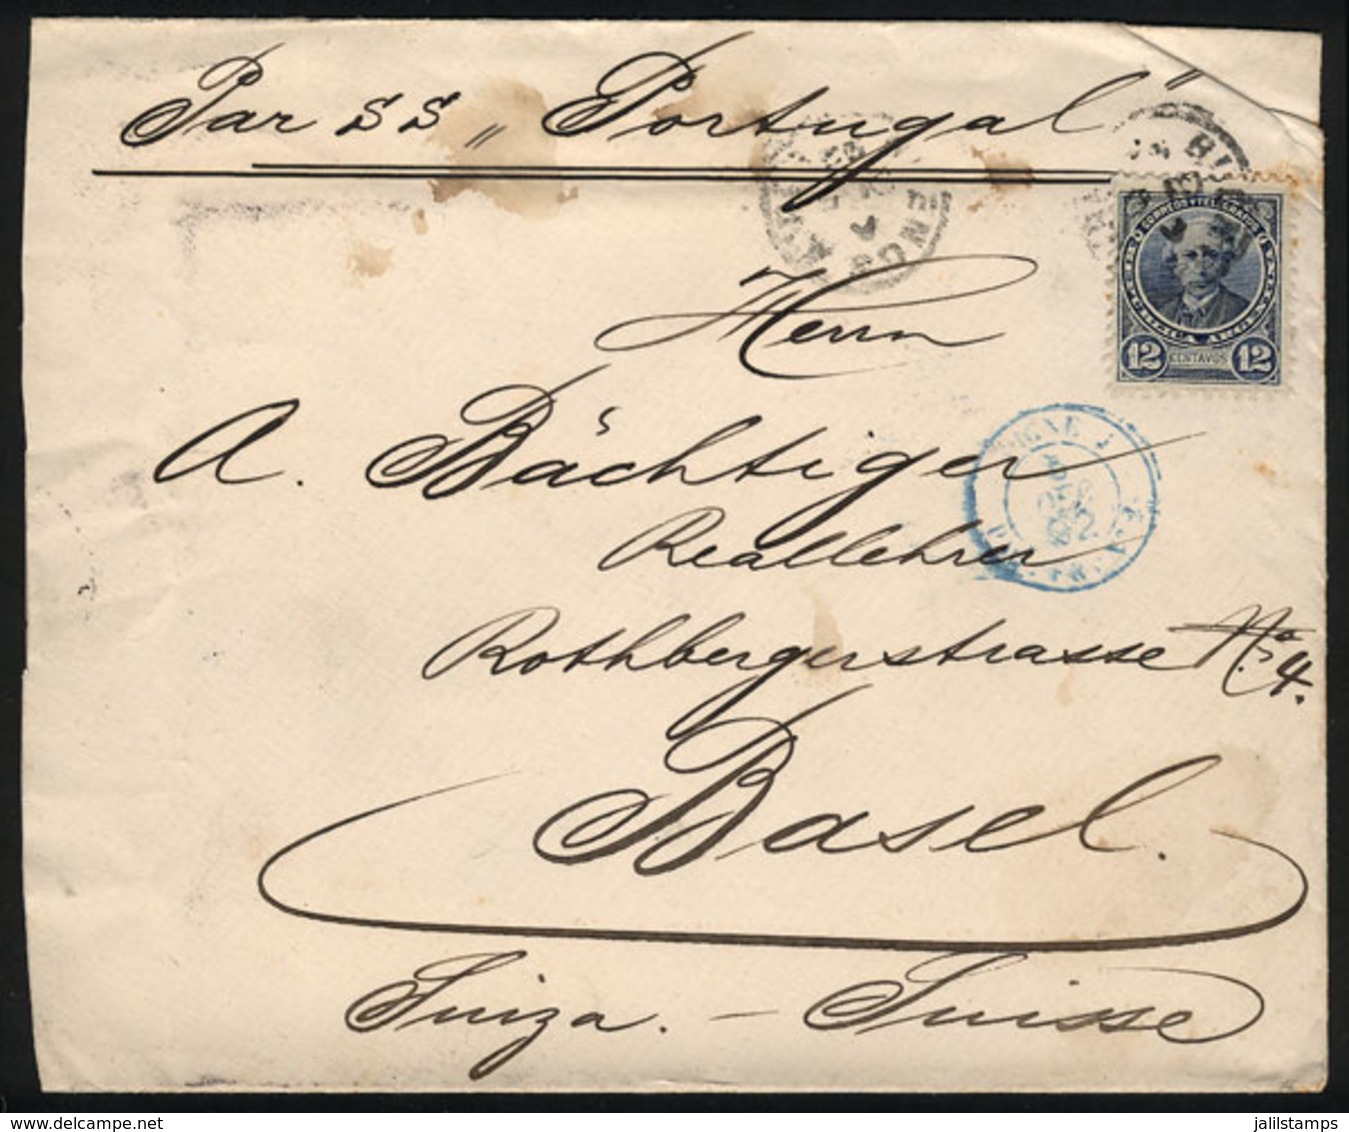 Par SS „Portugal"
Herrn
A. Bächtiger
Reallehrer
Rothbergerstrasse No 4.
Basel.
Suiza. — Suisse
CORREOS Y TELEGRAFOS
12 CENTAVOS 12
LIGNE J
92
delcampe.net
jalilstamps